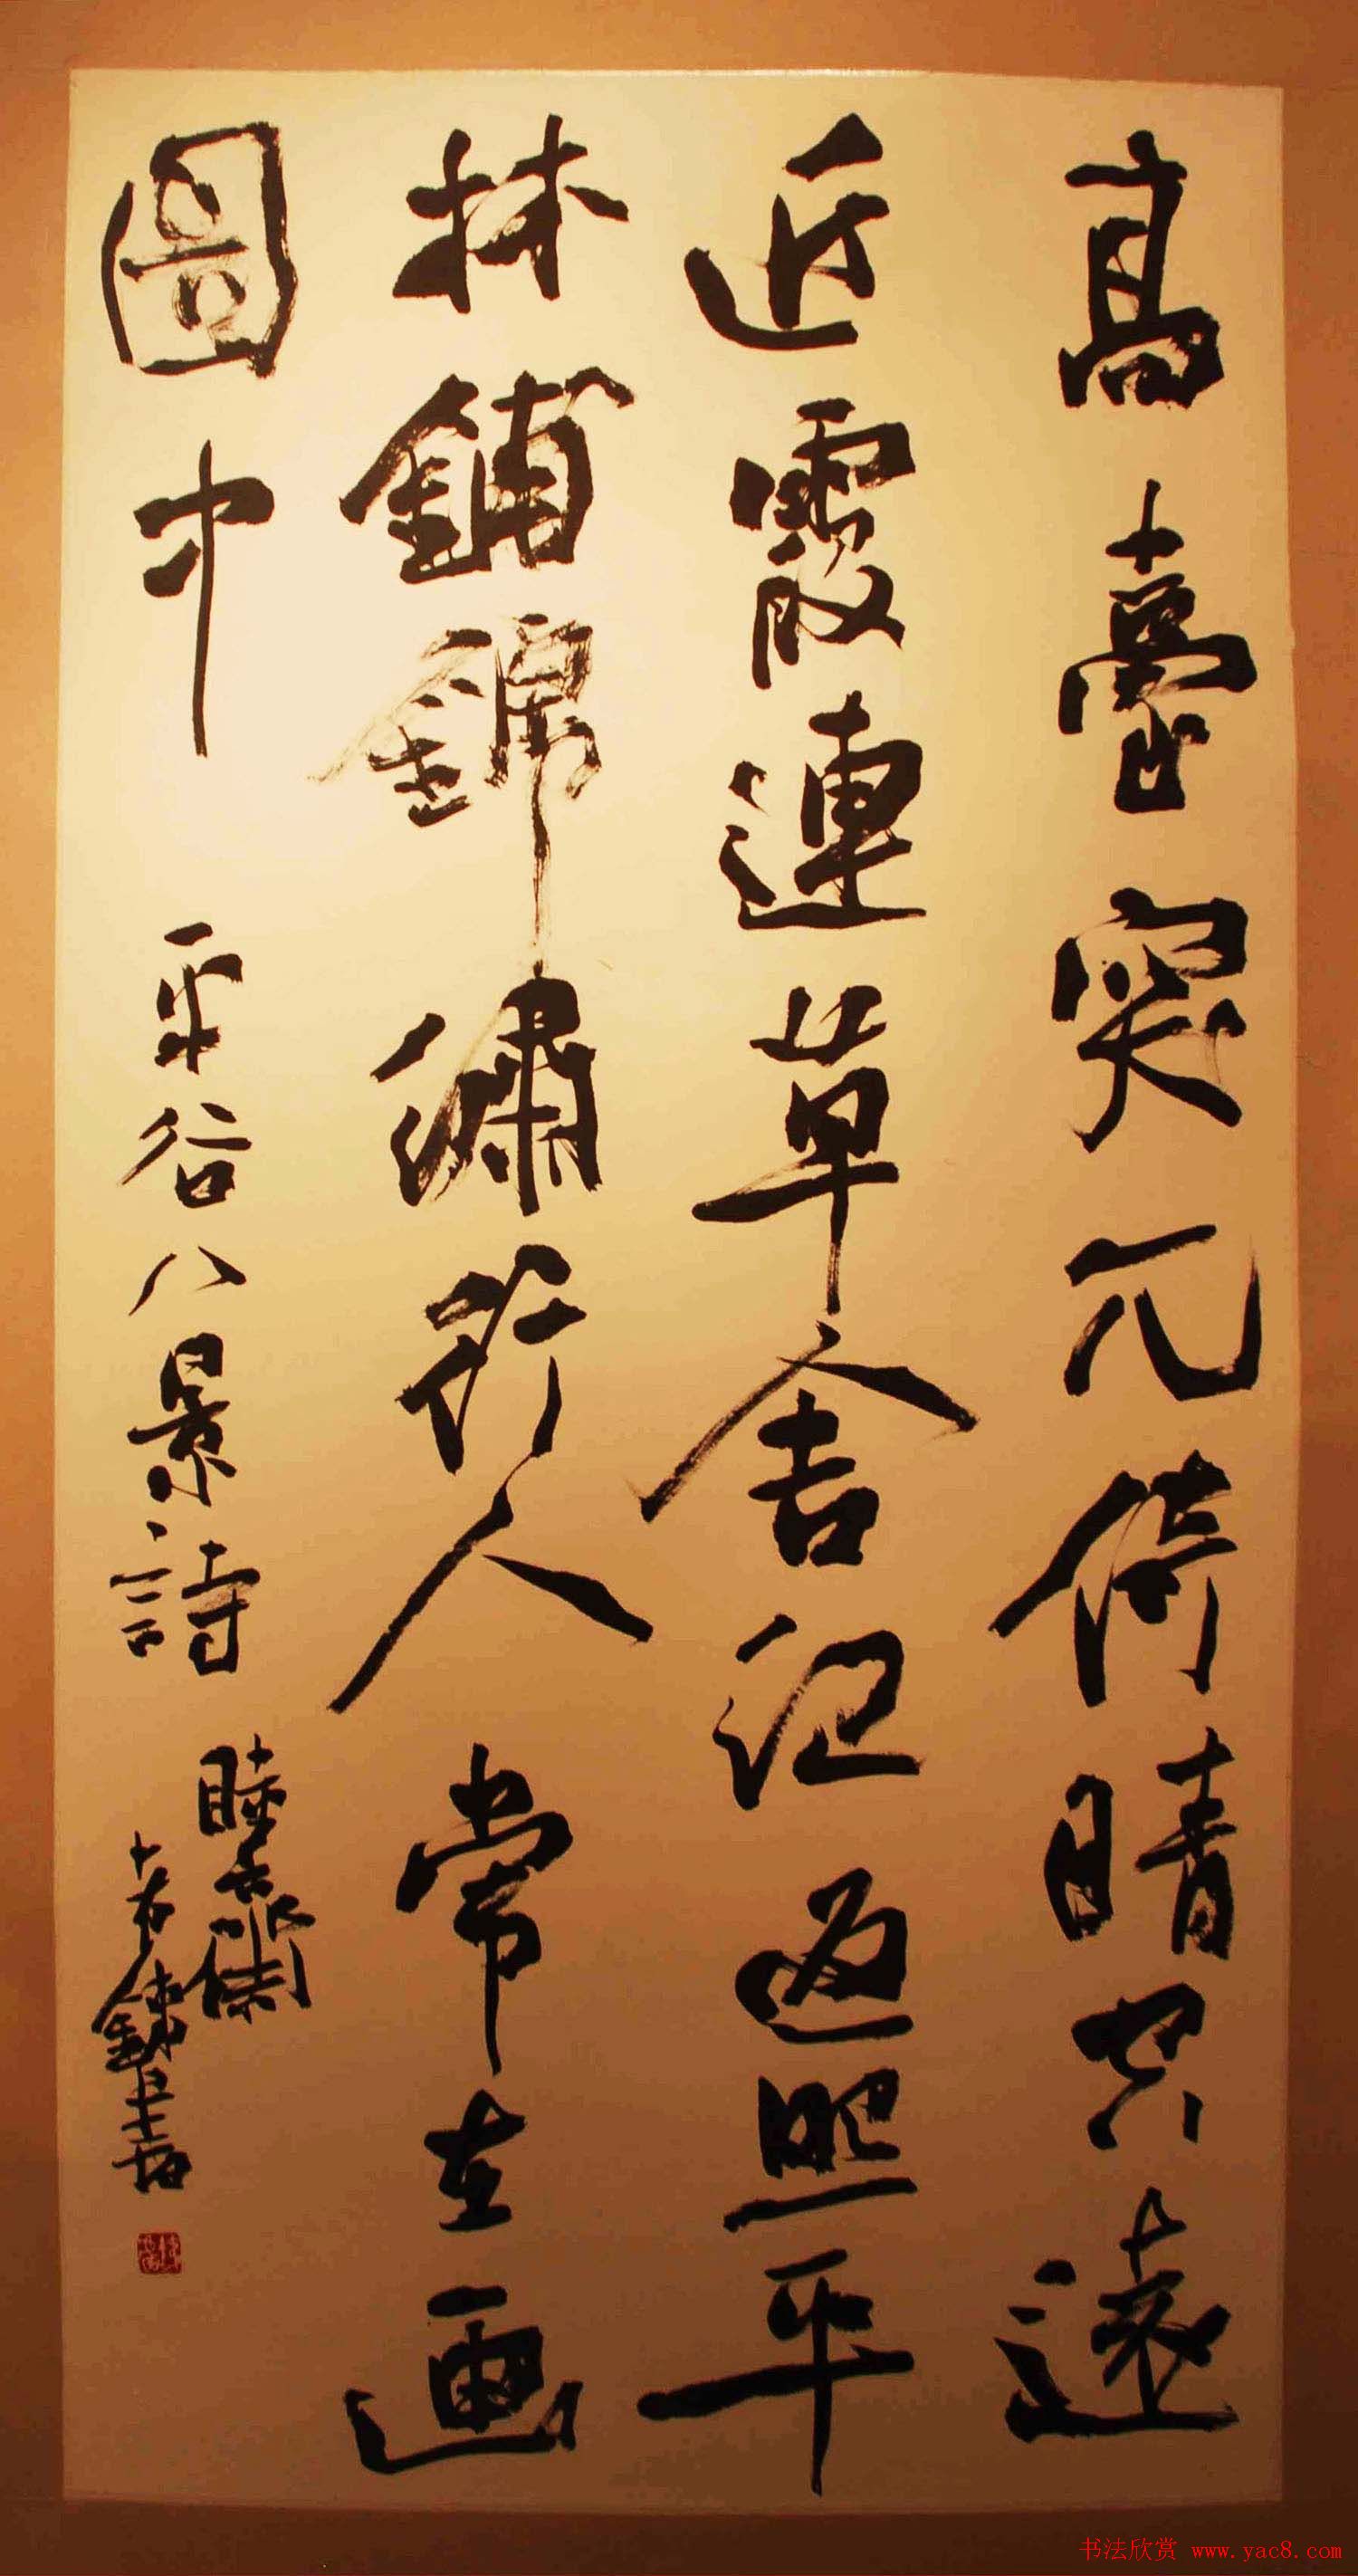 高臺突兀倚晴空遠
近霞連草舍紅返照平
林鋪錦繡行人常在畫
圖中
平谷八景詩
書法欣赏 www.yac8.com